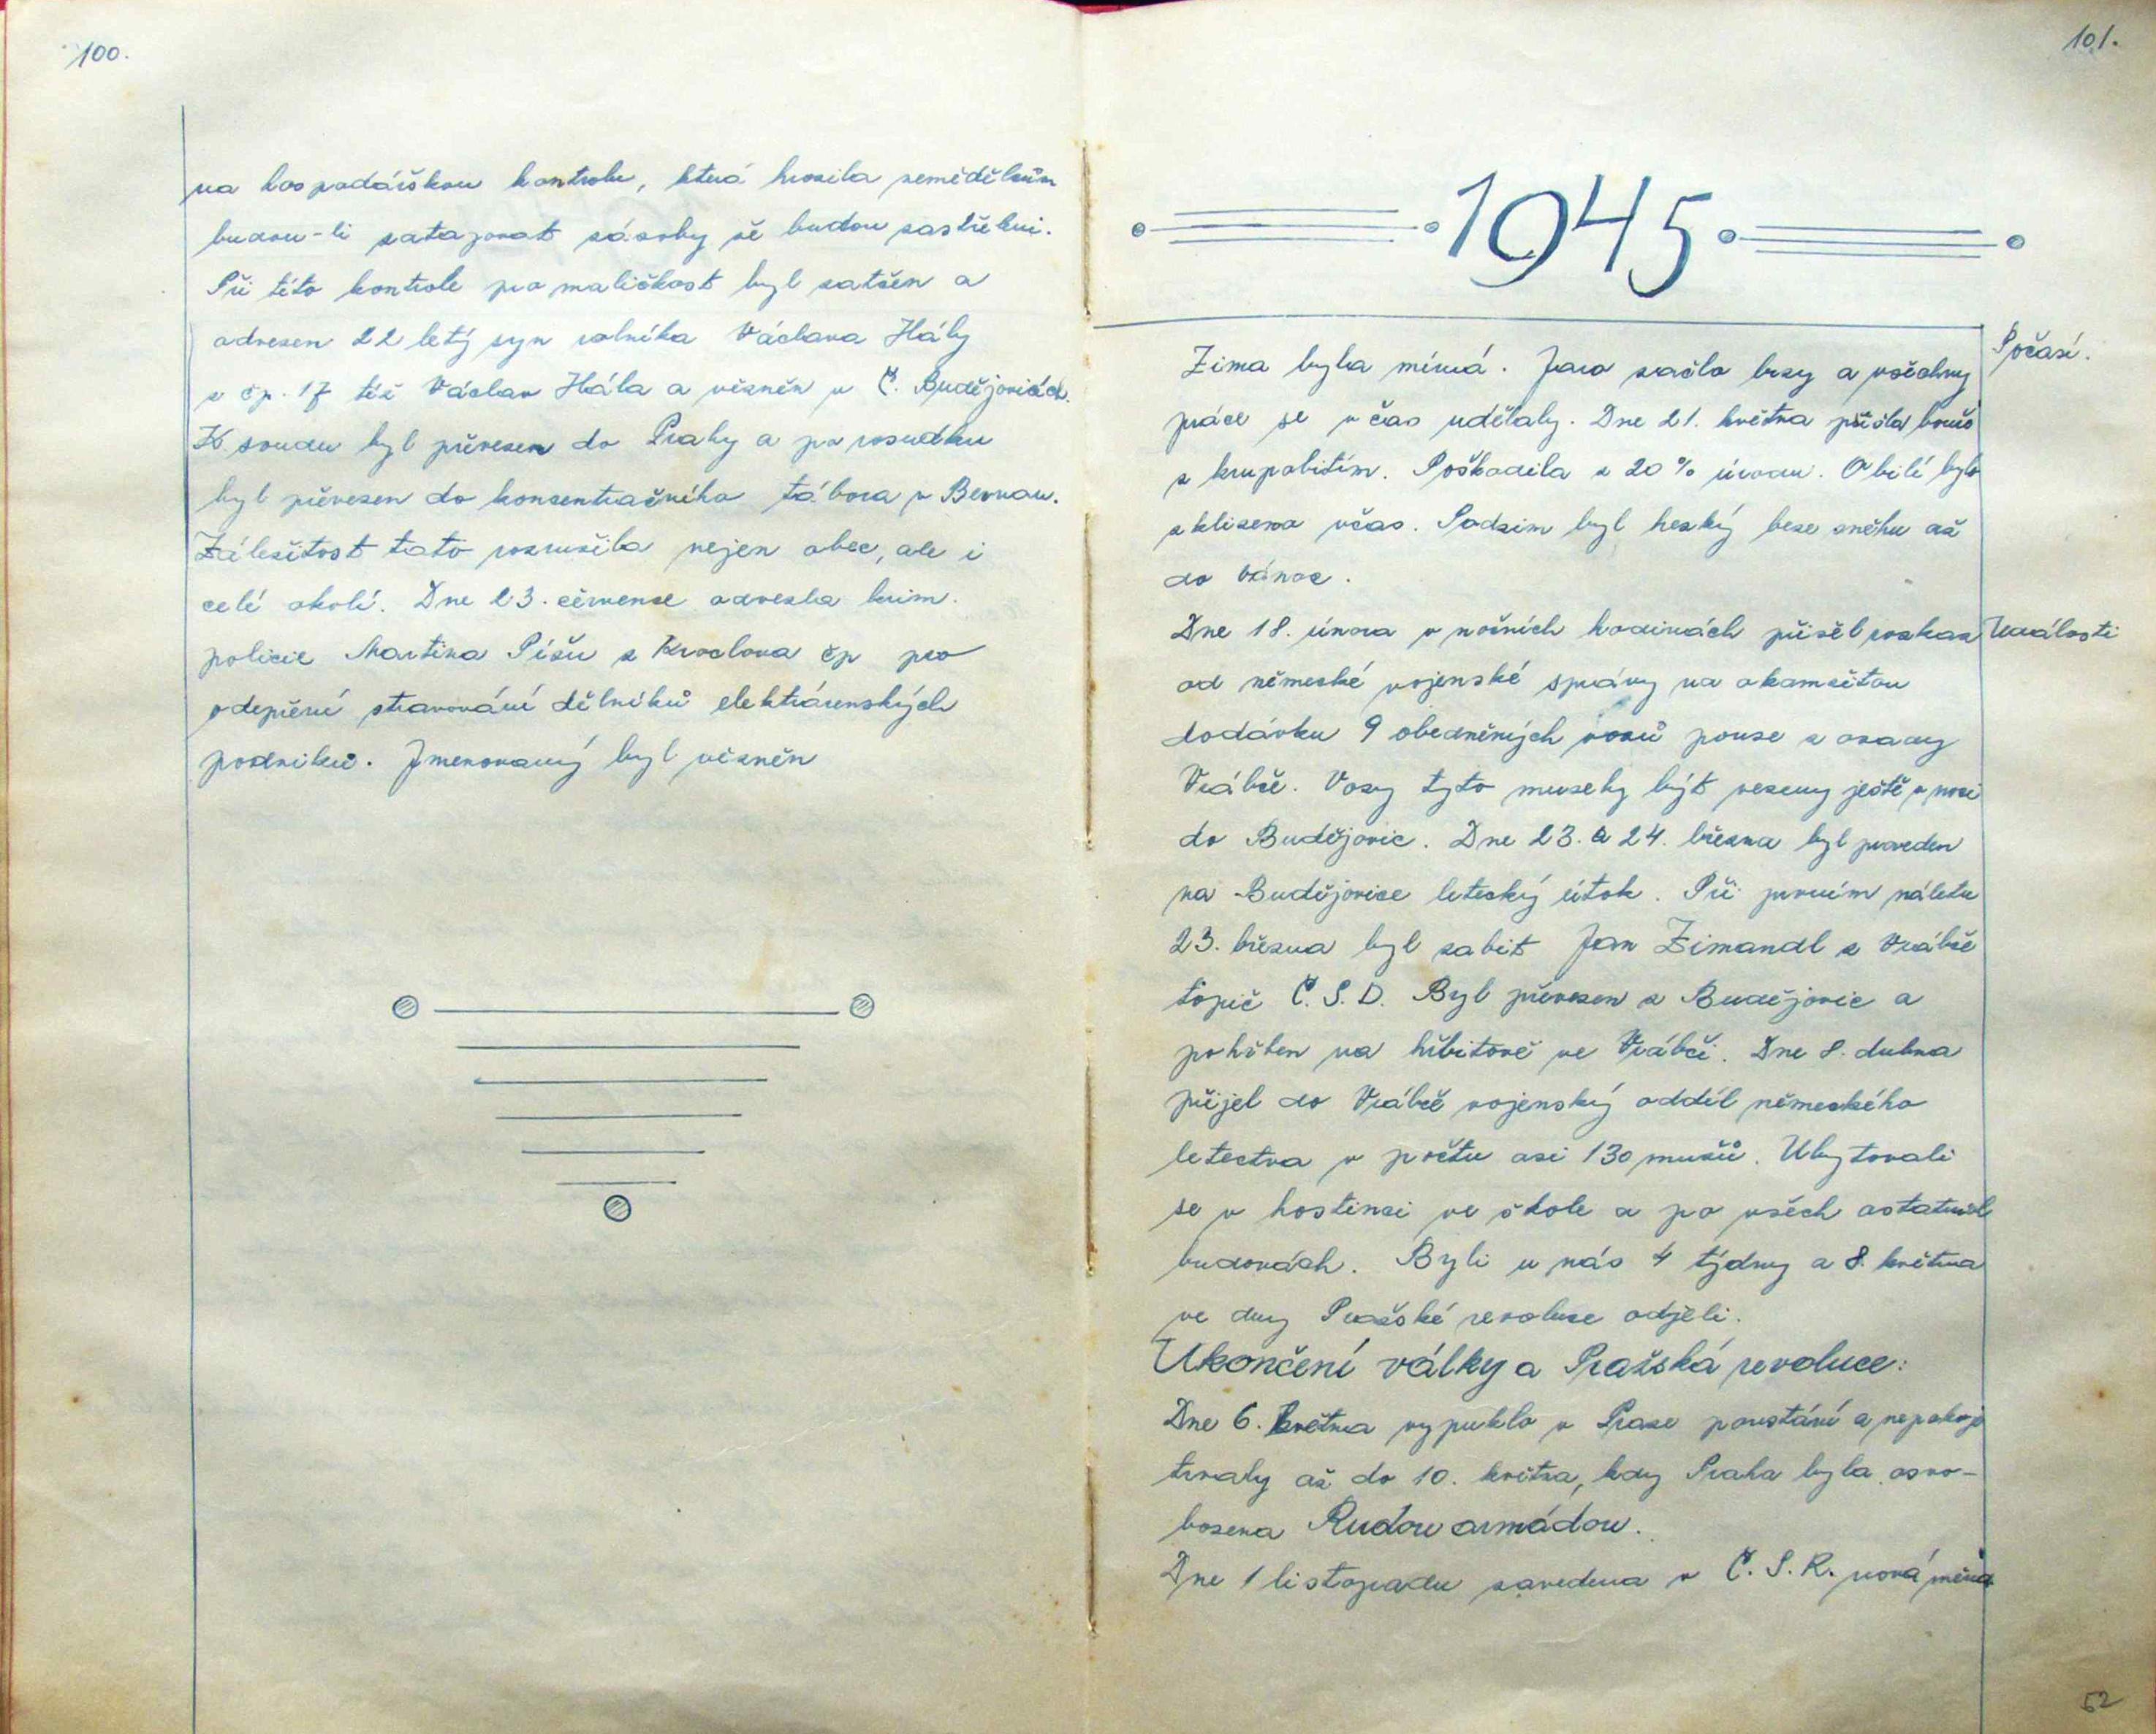 100.
na hospodářskou kontrolu, která hrozila zemědělcům
budou-li zatajovat zásoby že budou zastřeleni.
Při této kontrole pro maličkost byl zatčen a
odvezen 22 letý syn rolníka Václava Hály
z čp. 17 též Václav Hála a vězněn v Č. Budějovicích.
K soudu byl převezen do Prahy a po rozsudku
byl převezen do konsentračního tábora v Bernau.
Záležitost tato rozrušila nejen obec, ale i
celé okolí. Dne 23. červense odvezla krim.
policie Martina Píšu z Kroclova čp pro
odepření stravování dělníků elektrárenských
podniků. Jmenovaný byl vězněn
101.
1945
Počasí.
Zima byla mírná. Jaro začlo brzy a všechny
práce se v čas udělaly. Dne 21. května přišla bouř
s krupobitím. Poškodila z 20% úrodu. Obilí bylo
sklizeno včas. Podzim byl hezký beze sněhu až
do vánoc.
Dne 18. února v nočních hodinách přišěl rozkaz Události
od německé vojenské správy na okamžitou
dodávku 9 obedněných vozů pouze z osady
Vrábče. Vozy tyto musely být vezeny ještě v noci
do Budějovic. Dne 23. a 24. března byl proveden
na Budějovice letecký útok. Při prvním náletu
23. března byl zabit Jan Zimandl z Vrábče
topič Č.S.D. Byl převezen z Budějovic a
pohřben na hřbitově ve Vrábči. Dne 8. dubna
přijel do Vrábče vojenský oddíl německého
letectva v počtu asi 130 mužů. Ubytovali
se v hostinci ve škole a po všech ostatních
budovách. Byli u nás 4 týdny a 8. května
ve dny Pražské revoluce odjeli.
Ukončení války a Pražská revoluce:
Dne 6. května vypuklo v Praze povstání a nepokoje
trvaly až do 10. května, kdy Praha byla osvo-
bozena Rudou armádou.
Dne 1 listopadu zavedena v Č.S.R. nová měna
52